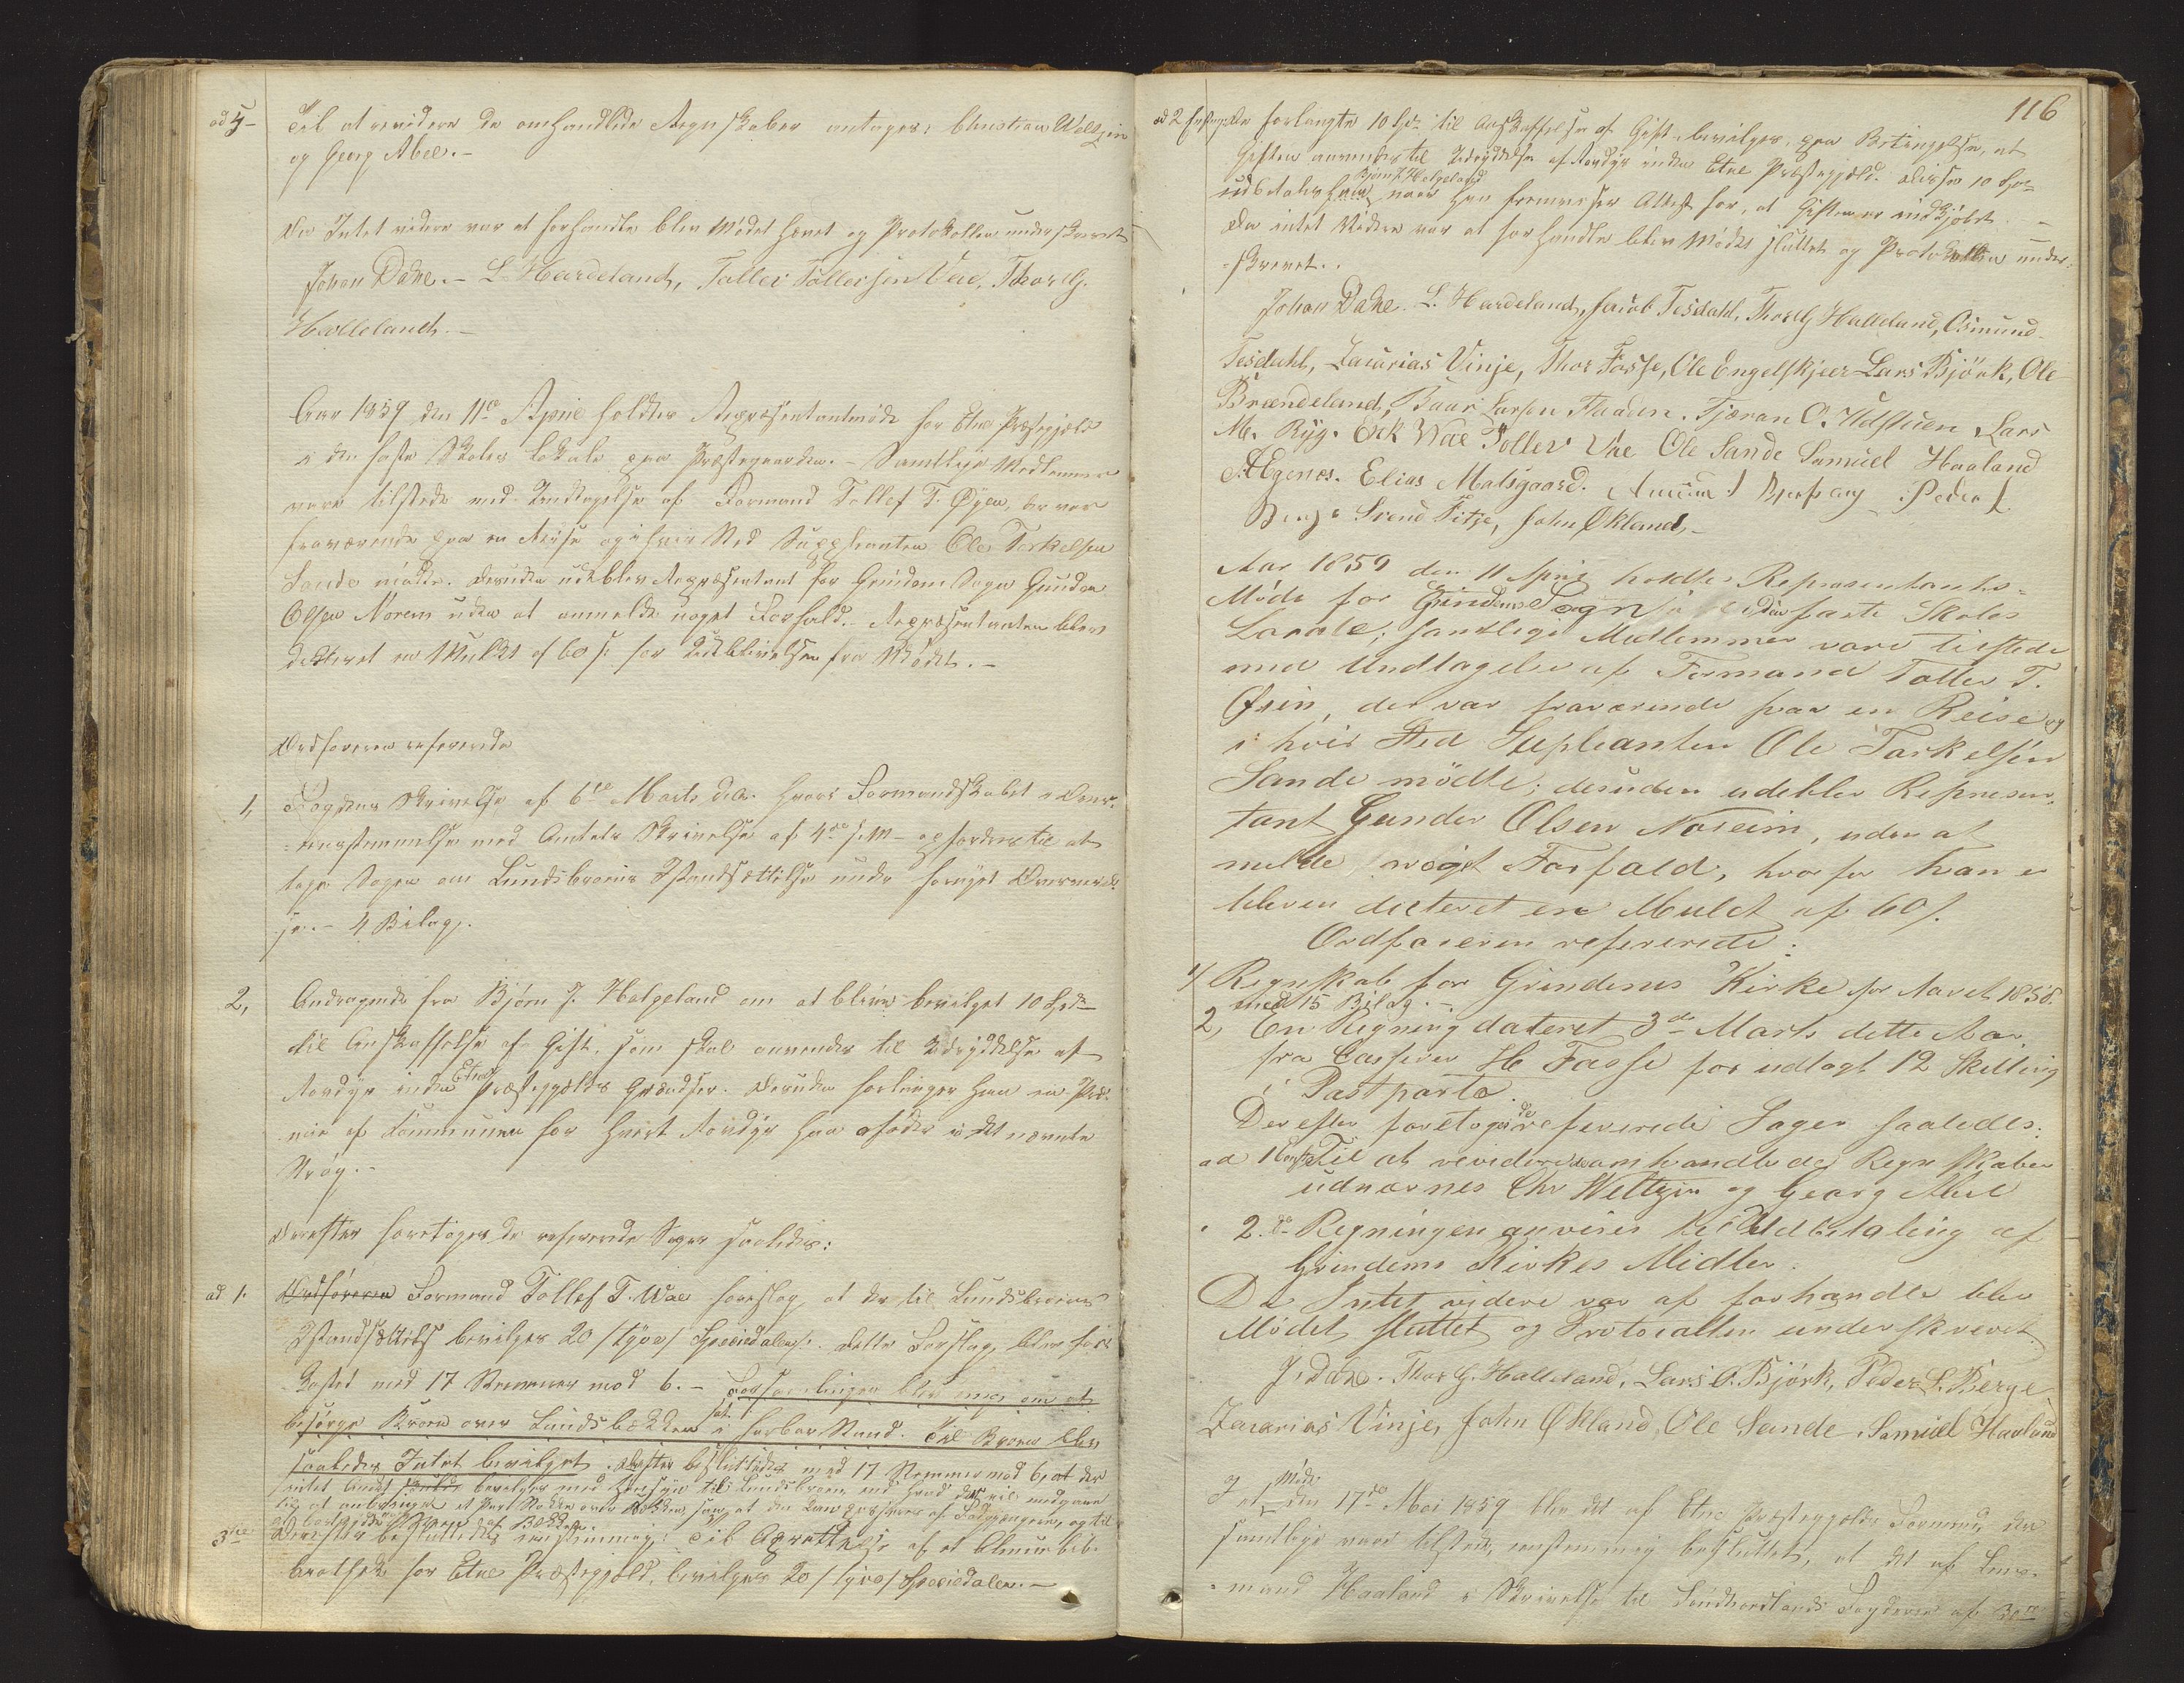 ad 4 - Til at revidere de omhandlede Regnskaber antages: Christian Weltzin
og Georg Abel. -
Da Intet videre var at forhandle blev Mødet hævet og Protokollen underskrevet
Johan Dahl. - L. Hardeland, Tollev Tollevsen Vae, Thor G.
Halleland. -
Aar 1859 den 11te April holdtes Repræsentantmøde for Etne Præstegjæld
i den faste Skoles Lokale paa Præstegaarden. - Samtlige Medlemmer
vare tilstede med Undtagelse af Formand Tollef T. Øyen, der var
fraværende paa en Reise og i hvis Sted Suppleanten Ole Torkelsen
Sande mødte. Desuden udeblev Repræsentant for Grindem Sogn Gunder
Olsen Norem uden at anmelde noget Forfald. - Repræsentanten blev
dikteret en Mulkt af 60 s for Udeblivelsen fra Mødet. -
Ordføreren refererede
1, Fogdens Skrivelse af 6te Marts d.A. hvori Formandskabet i Over-
eensstemmelse med Amtets Skrivelse af 4de s.M. opfordres til at
tage Sagen om Lundsbroens Istandsættelse under fornyet Overveiel-
se. - 4 Bilag.
2, Andragende fra Bjørn J. Helgeland om at blive bevilget 10 Spd
til Anskaffelse af Gift, som skal anvendes til Udryddelse af
Rovdyr inden Etne Præstegjælds Grændser. Desuden forlanger han en Præ-
mie af Kommunen for hvert Rovdyr han øder i det nævnte
Strøg. -
Derefter foretoges de refererede Sager saaledes:
ad 1. Ordføreren Formand Tollef T. Wae foreslog at der til Lundsbroens
Istandsættelse bevilges 20 /tyve/ Speciedaler. Dette Forslag blev for-
kastet med 17 Stemmer mod 6. - Forsamlingen blev enig om at
besørge Broen over Lundsbækken sat i farbar Stand. Til Broen blev
saaledes Intet bevilget. Derefter besluttedes med 17 Stemmer mod 6, at der
intet Andet skulde bevilges med Hensyn til Lundsbroen end hvad der vil medgaae
til at anbringe et Par Stokke over Bækken, saa at den kan passeres af Fodgjængere, og til
3die Derefter besluttedes eenstemmig: Til Oprettelse af et Almuebib-
liothek for Etne Præstegjæld, bevilges 20 /tyve/ Speciedaler. -
116
ad 2 forlangte 10 Spd til Anskaffelse af Gift bevilges, paa Betingelse, at
Giften anvendes til Udryddelse af Rovdyr inden Etne Præstegjæld. Disse 10 Spd
Bjørn J. Helgeland
udbetales ham, naar han fremviser Attest for, at Giften er indkjøbt. -
Da intet Videre var at forhandle blev Mødet sluttet og Protokollen under-
skrevet.
Johan Dahl. L. Hardeland, Jacob Tesdahl, Thor G Halleland, Osmund
Tesdahl, Zacarias Vinje, Thor Fosse, Ole Engelskjeer Lars Bjørk, Ole
Brændeland, Baar Larsen Flaaden. Tjæran O. Udstuen Lars
M. Ryg. Erik Wae Tollev Vae Ole Sande Samuel Haaland
Elias Matsgaard. Peder L.
Berge Svend Fitje, John Økland. -
Aar 1859 den 11 April holdtes Representants-
Møde for Grindems Sogn i den faste Skoles
Locale; samtlige Medlemmer vare tilstede
med Undtagelse af Formand Tollev T.
Øien, der var fraværende paa en Reise og
i hvis Sted Supleanten Ole Torkelsen
Sande mødte; desuden udeblev Represen-
tant Gunder Olsen Noreim, uden at
melde noget Forfald, hvorfor han er
bleven dicteret en Mulct af 60 s.
Ordføreren refererede:
1/ Regnskab for Grindems Kirke for Aaret 1858.
med 15 Bilag. -
2, En Regning dateret 3de Marts dette Aar
fra Casserer H Fosse for udlagt 12 Skilling
i Postporto.
Derefter foretoges de refererede Sager saaledes:
ad 1 Til at revidere de omhandlede Regnskaber
udnævnes Chr Weltzin og Georg Abel
" 2. Regningen anvises til Udbetaling af
Grindems Kirkes Midler.
Da Intet videre var at forhandle blev
Mødet sluttet og Protocollen underskrevet.
J. Dahl. Thor G. Halleland, Lars O. Bjørk, Peder L. Berge
Zacarias Vinje, John Økland, Ole Sande, Samuel Haaland
I et Møde den 17de Mai 1859 blev det af Etne Præstegjælds Formænd, der
samtlige vare tilstede, eenstemmig besluttet, at det af Lens-
mand Haaland i Skrivelse til Søndhordlands Fogderi af 30te